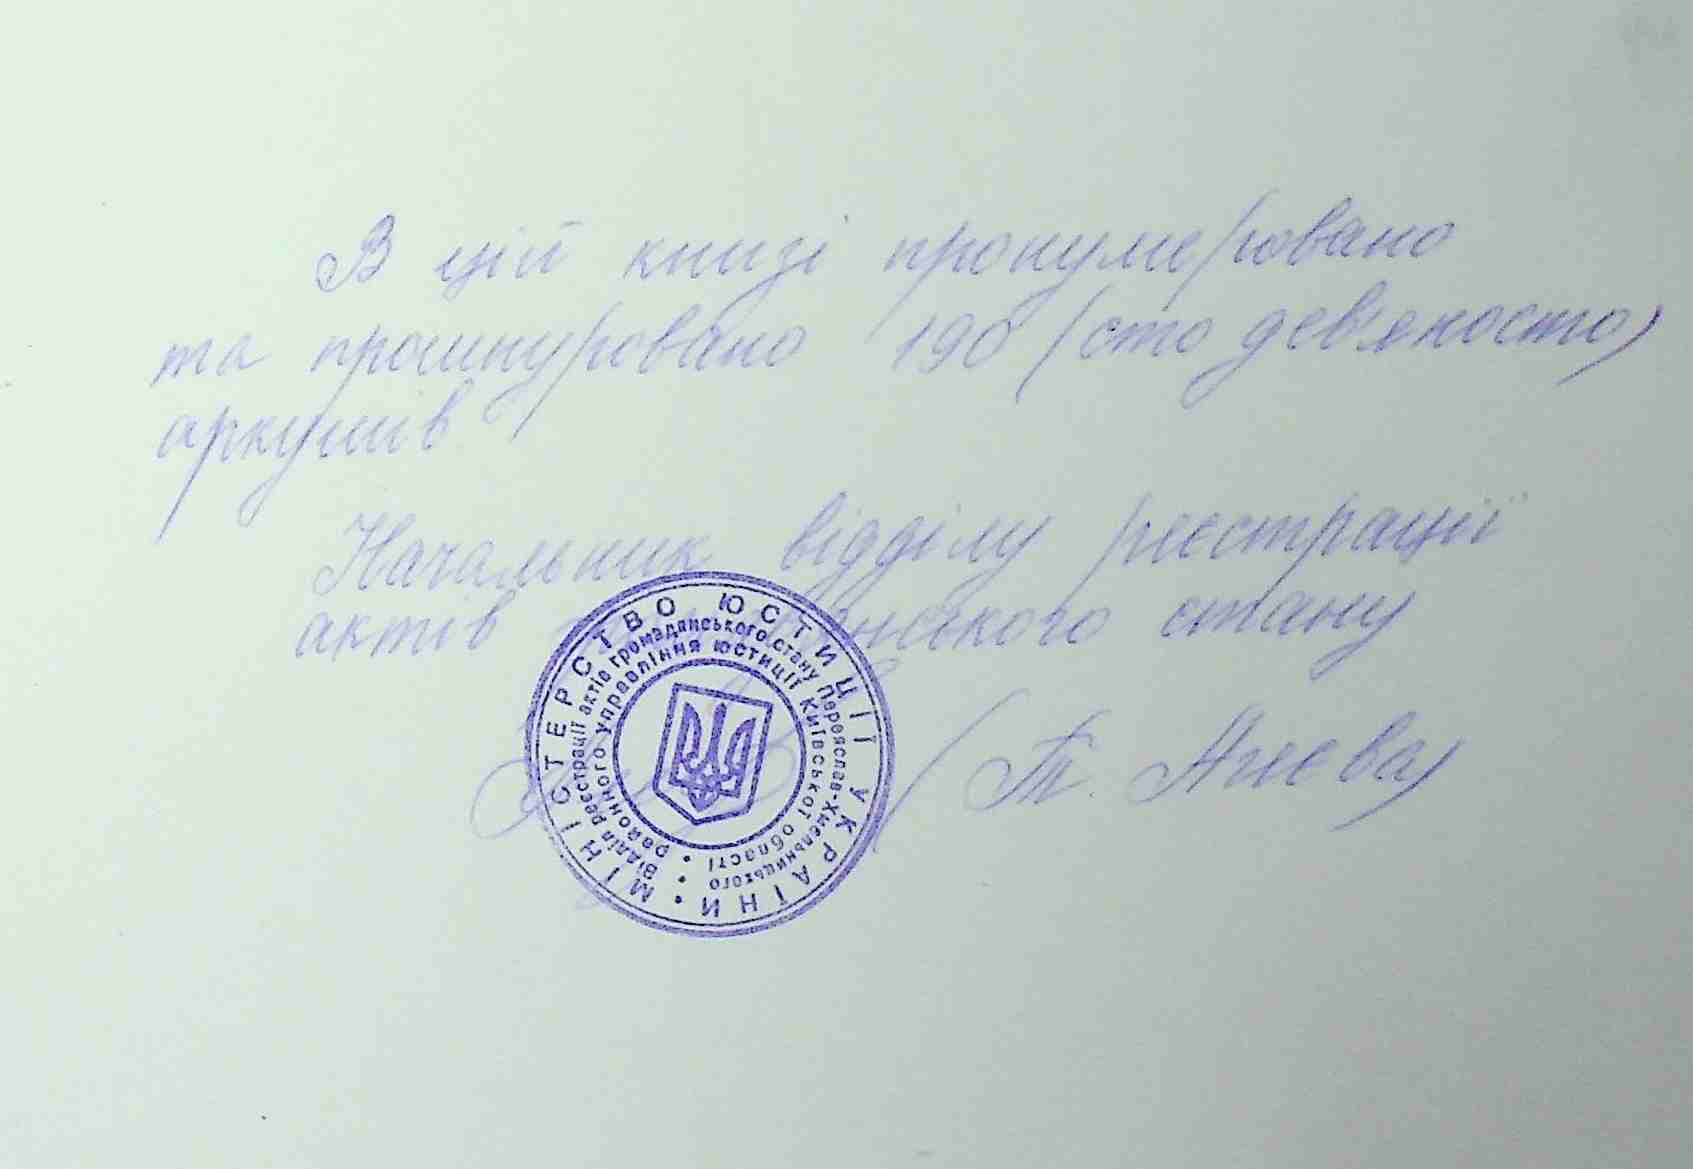 В цій книзі пронумеровано
та прошнуровано 190 (сто дев'яносто)
аркушів
Начальник відділу реєстрації
актів громадянського стану
(Т. Агєєва)
МІНІСТЕРСТВО ЮСТИЦІЇ УКРАЇНИ
Відділ реєстрації актів громадянського стану Переяслав-Хмельницького
районного управління юстиції Київської області